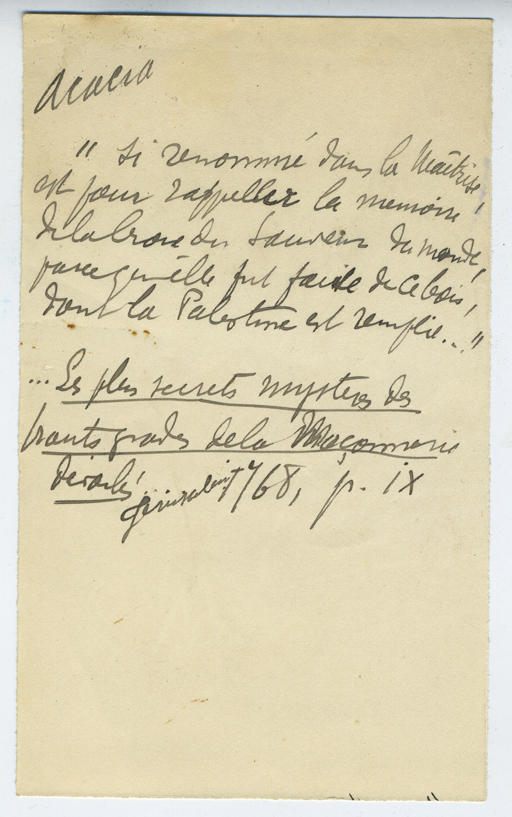 Acacia
" si renommé dans la Maîtrise,
est pour rappeller la memoire
de la Croix du Sauveur du monde,
parce qu'elle fut faite de ce bois,
dont la Palestine est remplie..."
... Les plus secrets mysteres des
hauts grades de la Maçonnerie
dévoilés, Jérusalem, 1768, p. ix